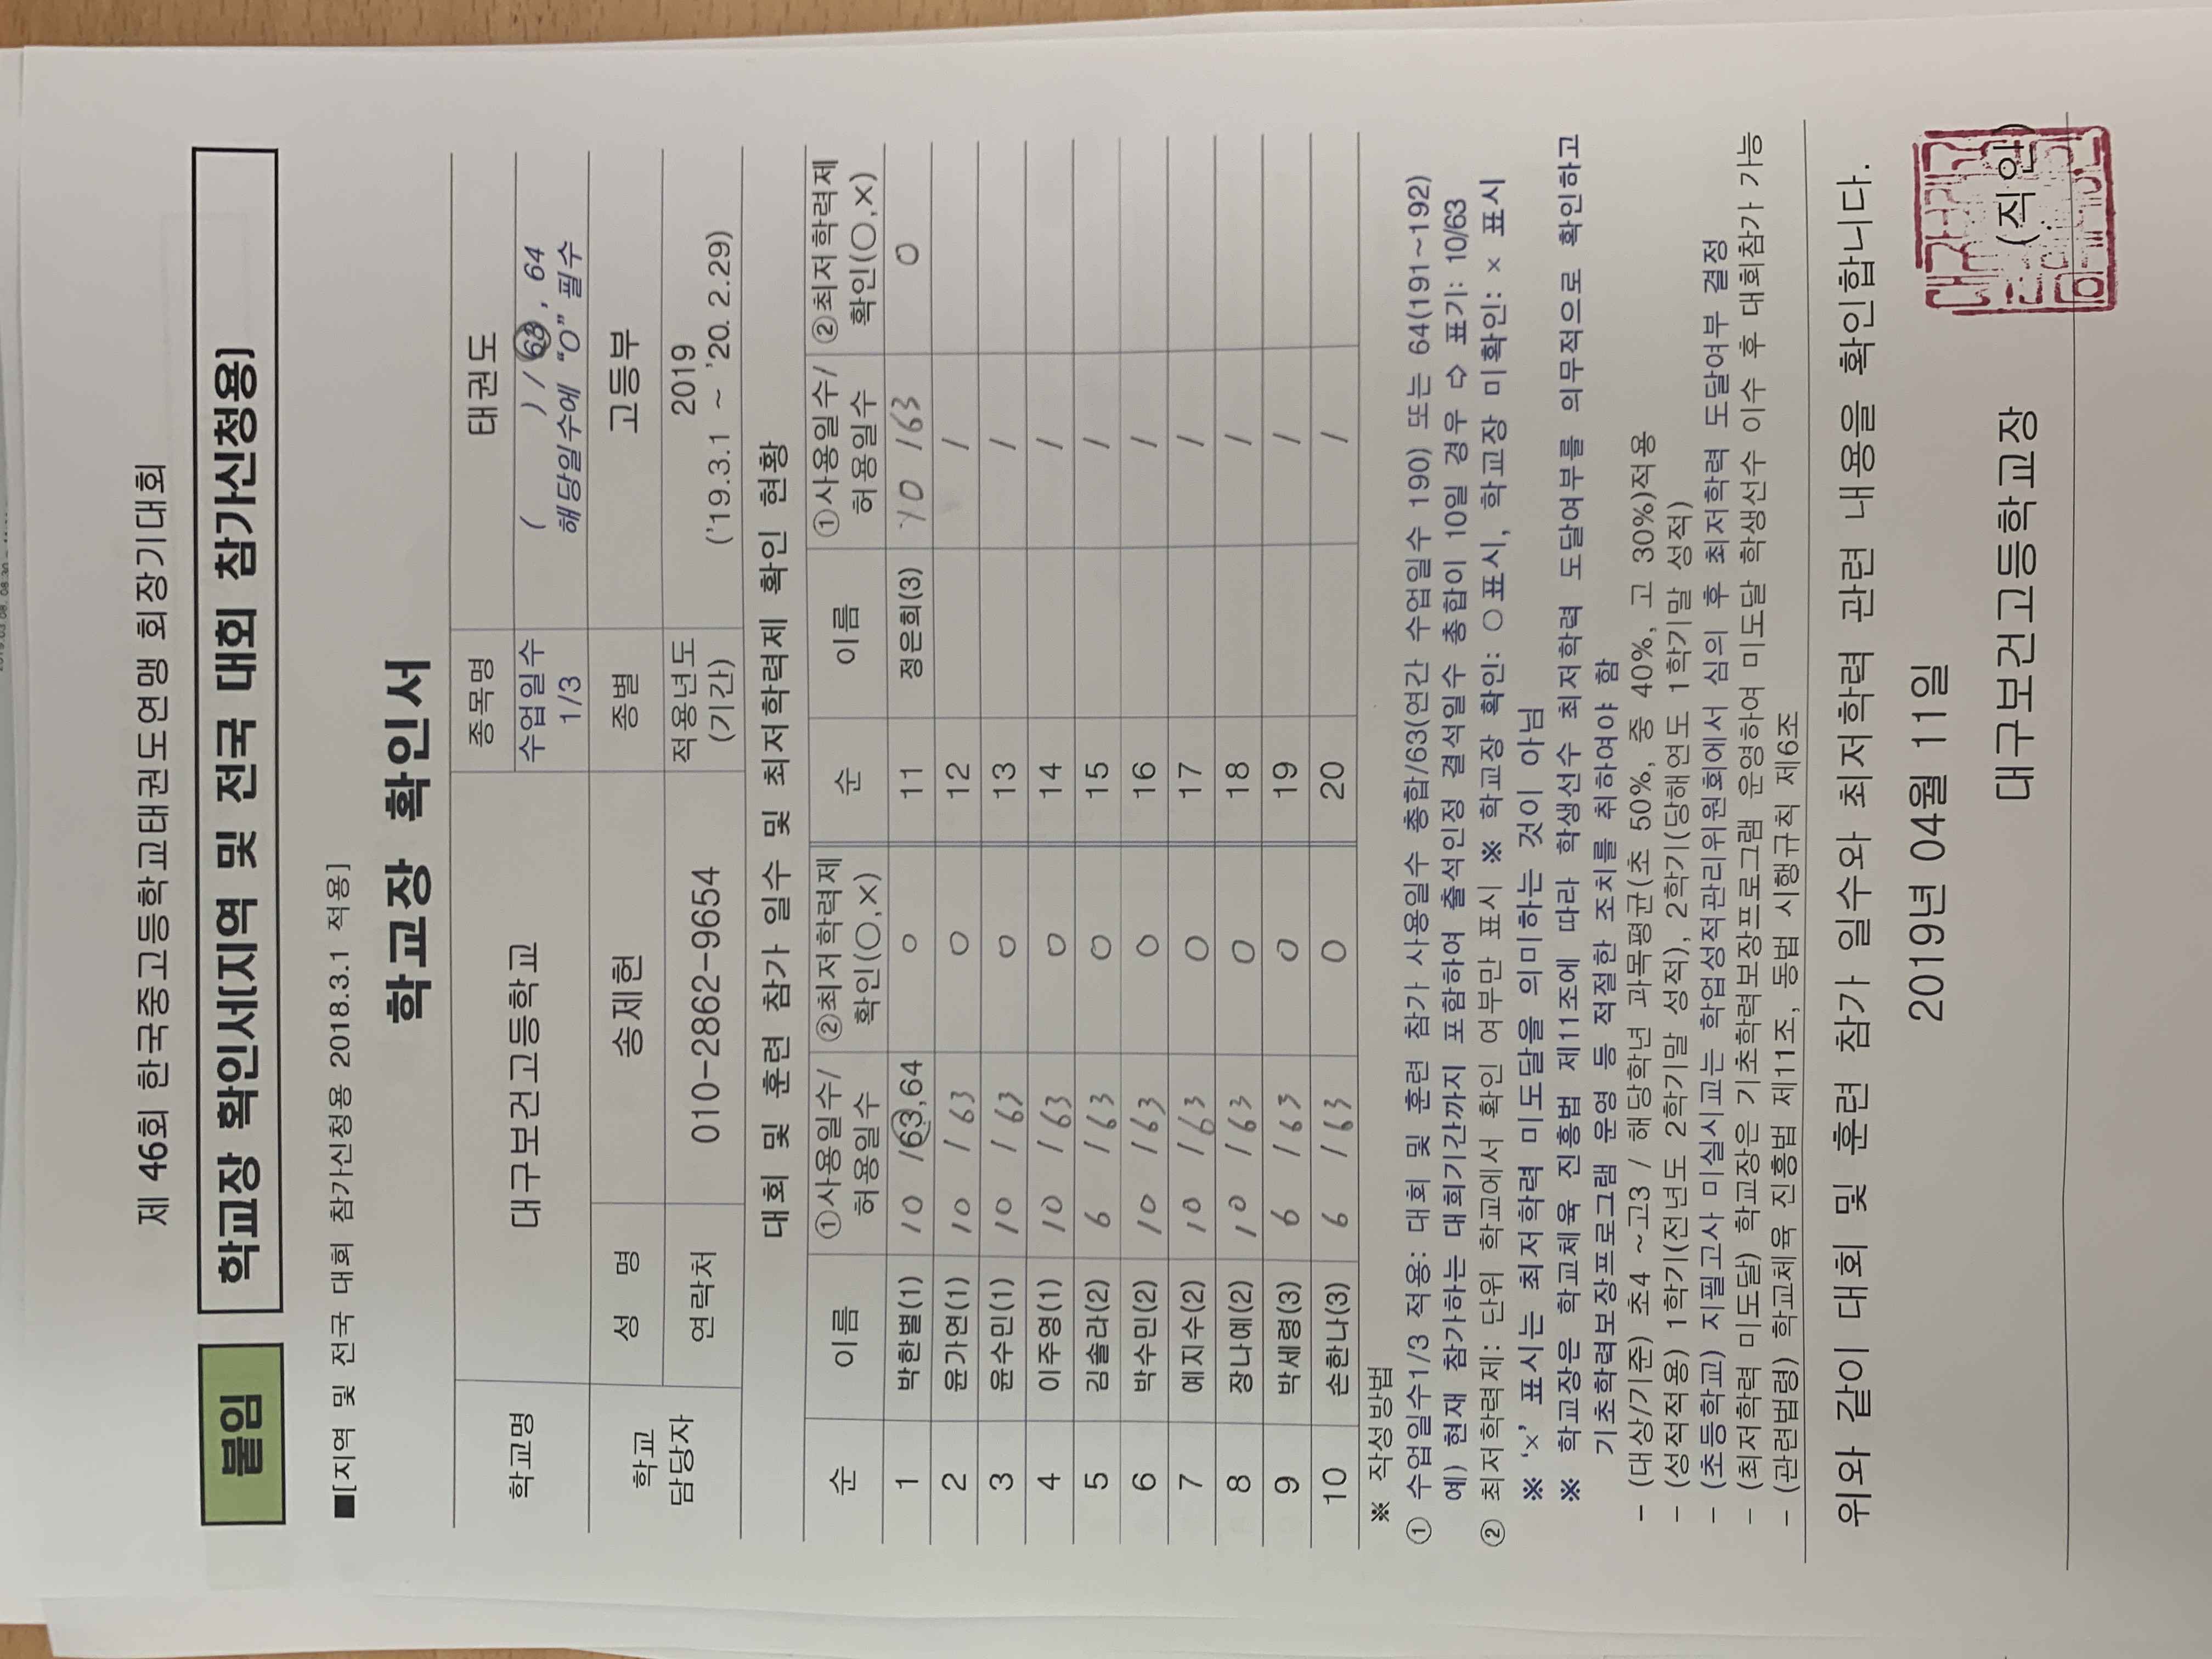 제 46회 한국중고등학교태권도연맹 회장기대회
붙임 학교장 확인서[지역 및 전국 대회 참가신청용]
■[지역 및 전국 대회 참가신청용 2018.3.1 적용]
학교장 확인서
학교명 대구보건고등학교 종목명 태권도
수업일수 1/3 ( ) / 63, 64
해당일수에 "O" 필수
학교 담당자 성 명 송제헌 종별 고등부
연락처 010-2862-9654 적용년도 (기간) 2019
('19.3.1 ~ '20. 2.29)
대회 및 훈련 참가 일수 및 최저학력제 확인 현황
순 이름 ①사용일수/허용일수 ②최저학력제 확인(○,×) 순 이름 ①사용일수/허용일수 ②최저학력제 확인(○,×)
1 박한별(1) 10 /63,64 ○ 11 정은희(3) 10 /63 ○
2 윤가연(1) 10 /63 ○ 12 /
3 윤수민(1) 10 /63 ○ 13 /
4 이주영(1) 10 /63 ○ 14 /
5 김솔라(2) 6 /63 ○ 15 /
6 박수민(2) 10 /63 ○ 16 /
7 예지수(2) 10 /63 ○ 17 /
8 장나예(2) 10 /63 ○ 18 /
9 박세령(3) 6 /63 ○ 19 /
10 손한나(3) 6 /63 ○ 20 /
※ 작성방법
① 수업일수1/3 적용: 대회 및 훈련 참가 사용일수 총합/63(연간 수업일수 190) 또는 64(191~192)
예) 현재 참가하는 대회기간까지 포함하여 출석인정 결석일수 총합이 10일 경우 ⇨ 표기: 10/63
② 최저학력제: 단위 학교에서 확인 여부만 표시 ※ 학교장 확인: ○표시, 학교장 미확인: × 표시
※ '×' 표시는 최저학력 미도달을 의미하는 것이 아님
※ 학교장은 학교체육 진흥법 제11조에 따라 학생선수 최저학력 도달여부를 의무적으로 확인하고
기초학력보장프로그램 운영 등 적절한 조치를 취하여야 함
- (대상/기준) 초4 ~고3 / 해당학년 과목평균(초 50%, 중 40%, 고 30%)적용
- (성적적용) 1학기(전년도 2학기말 성적), 2학기(당해연도 1학기말 성적)
- (초등학교) 지필고사 미실시교는 학업성적관리위원회에서 심의 후 최저학력 도달여부 결정
- (최저학력 미도달) 학교장은 기초학력보장프로그램 운영하여 미도달 학생선수 이수 후 대회참가 가능
- (관련법령) 학교체육 진흥법 제11조, 동법 시행규칙 제6조
위와 같이 대회 및 훈련 참가 일수와 최저학력 관련 내용을 확인합니다.
2019년 04월 11일
대구보건고등학교장 (직인)